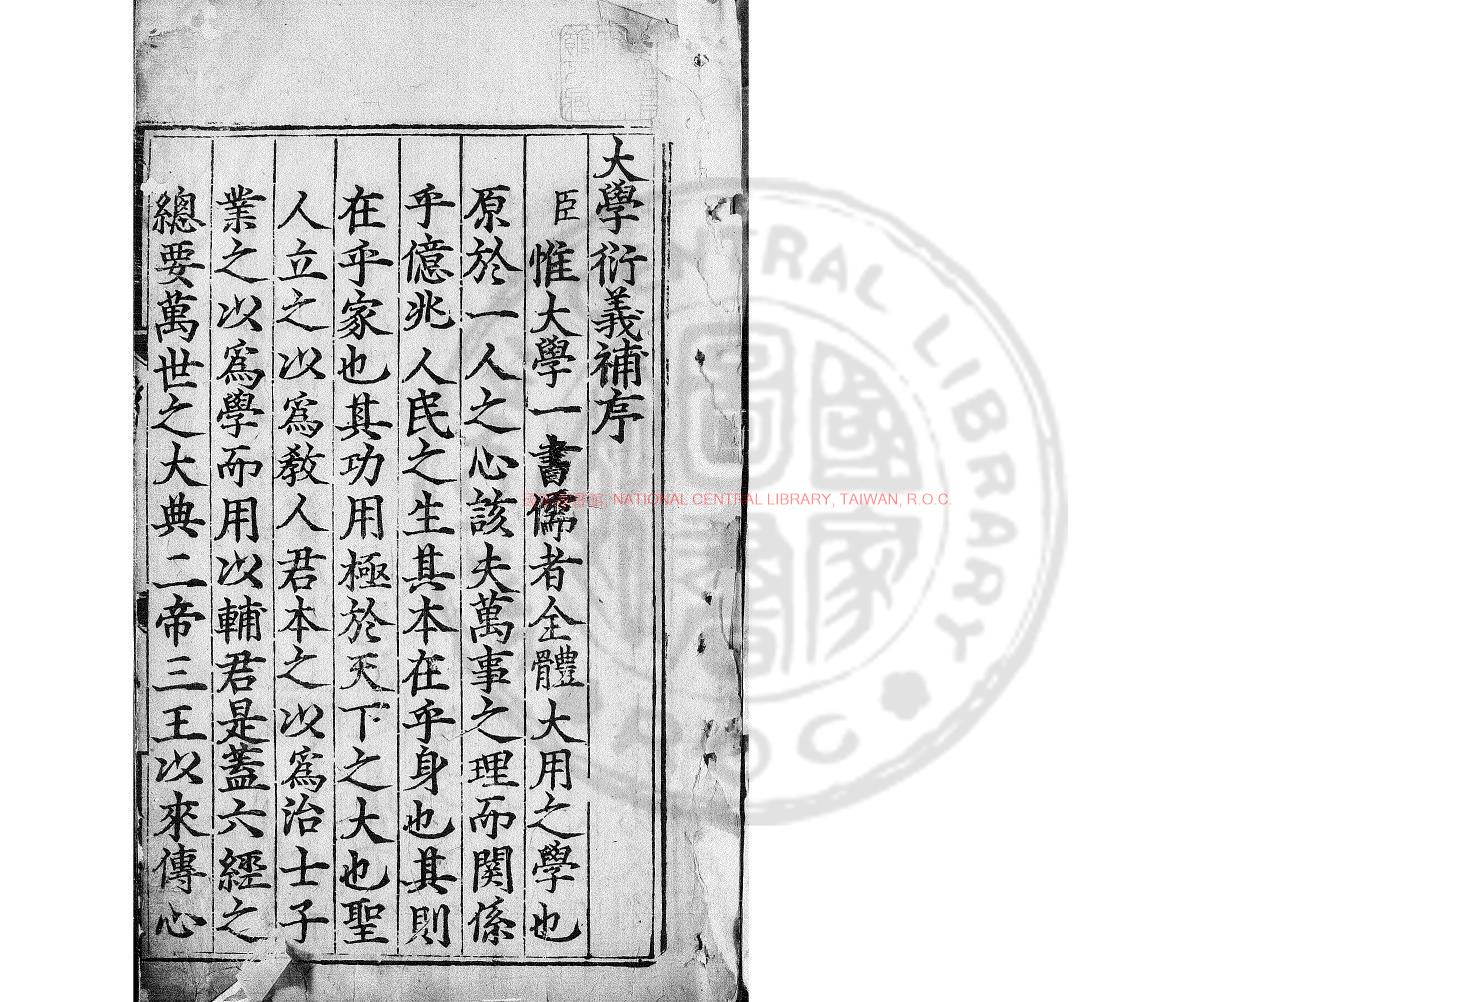 大學衍義補序
臣惟大學一書儒者全體大用之學也
原於一人之心該夫萬事之理而関係
乎億兆人民之生其本在乎身也其則
在乎家也其功用極於天下之大也聖
人立之以爲教人君本之以爲治士子
業之以爲學而用以輔君是蓋六經之
總要萬世之大典二帝三王以來傳心
NATIONAL CENTRAL LIBRARY, TAIWAN, R.O.C.
CENTRAL LIBRARY